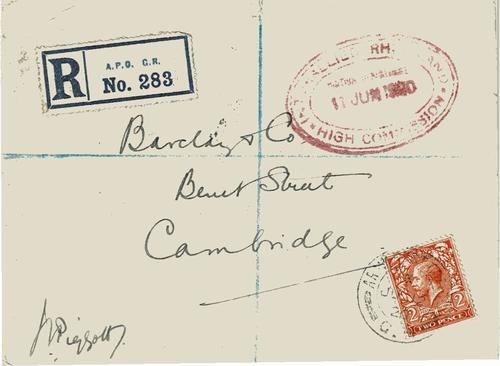 R A.P.O. G.R.
No. 283
INTER-ALLIED RHINELAND
11 JUN 1920
HIGH COMMISSION
Barclay & Co
Benet Street
Cambridge
2 2
TWO PENCE
J Piggott